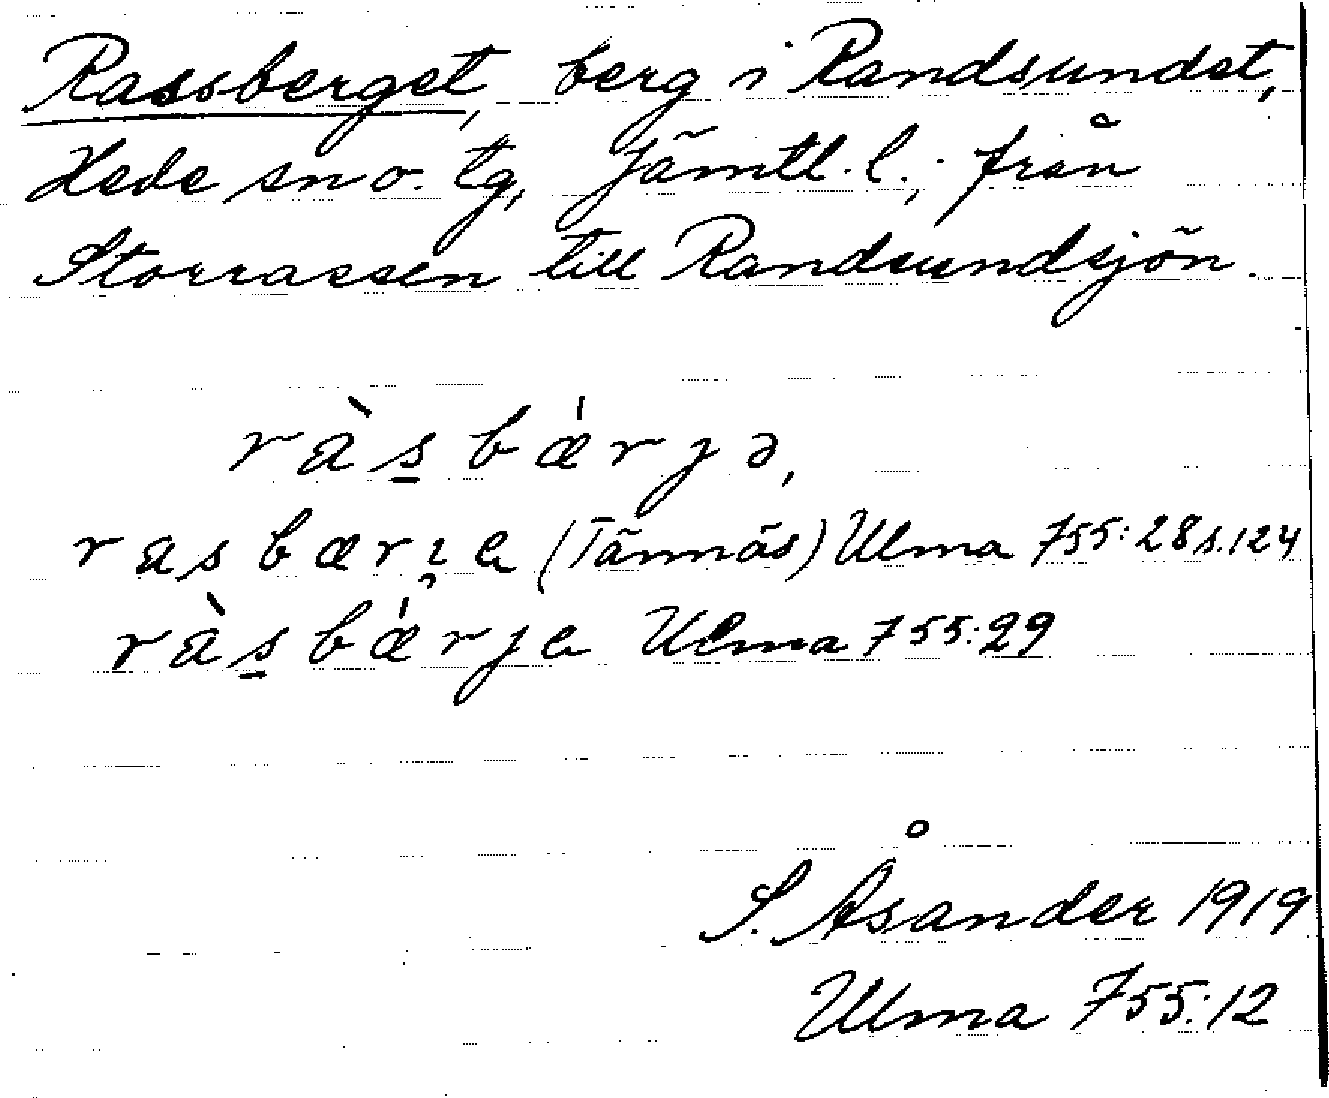 Rassberget, berg i Randsundet,
Hede sn o. tg, Jämtl. l.; från
Storrassen till Randsundsjön.
ràs̲bǽrjə,
rasbærı̯a (Tännäs) Ulma 755:28 s.124
ràs̲bǽrja Ulma 755:29
S. Åsander 1919
Ulma 755:12